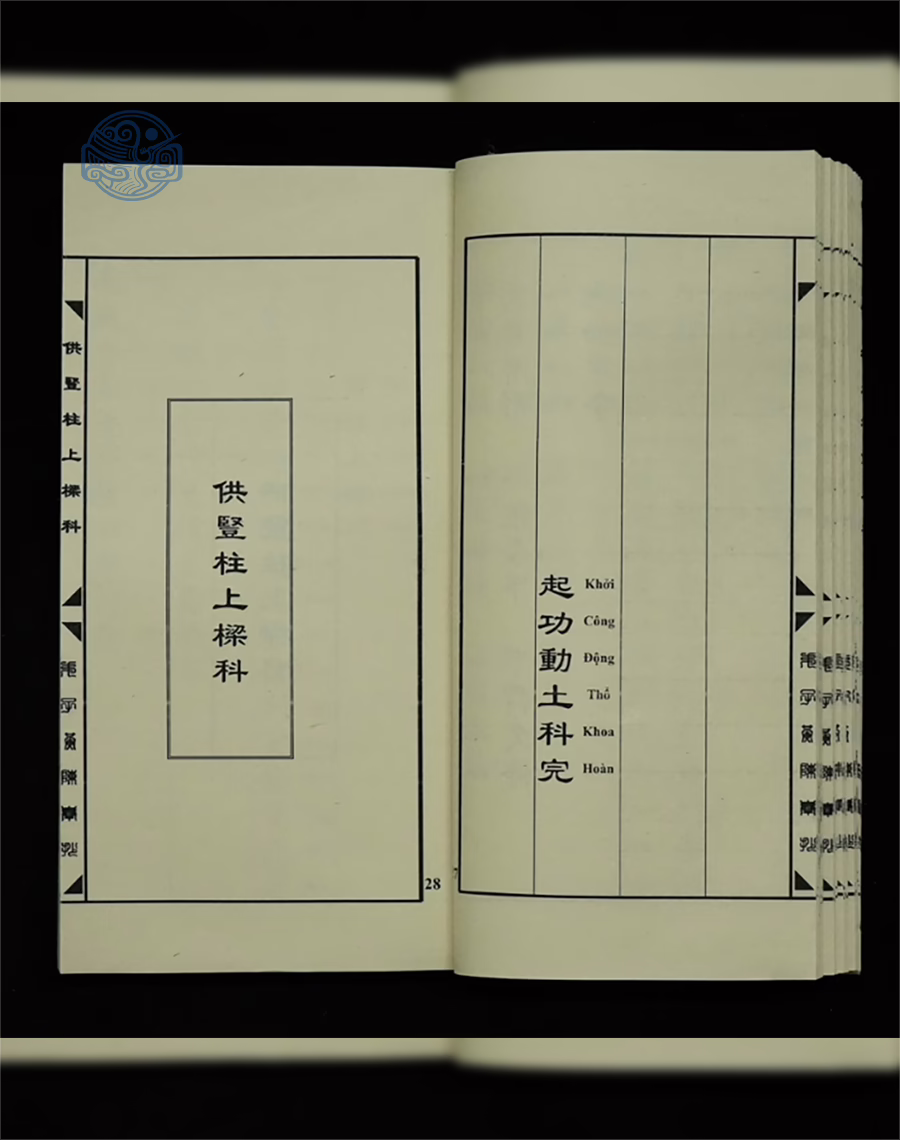 起功動土科完
Khởi Công Động Thổ Khoa Hoàn
供豎柱上樑科
供豎柱上樑科
28